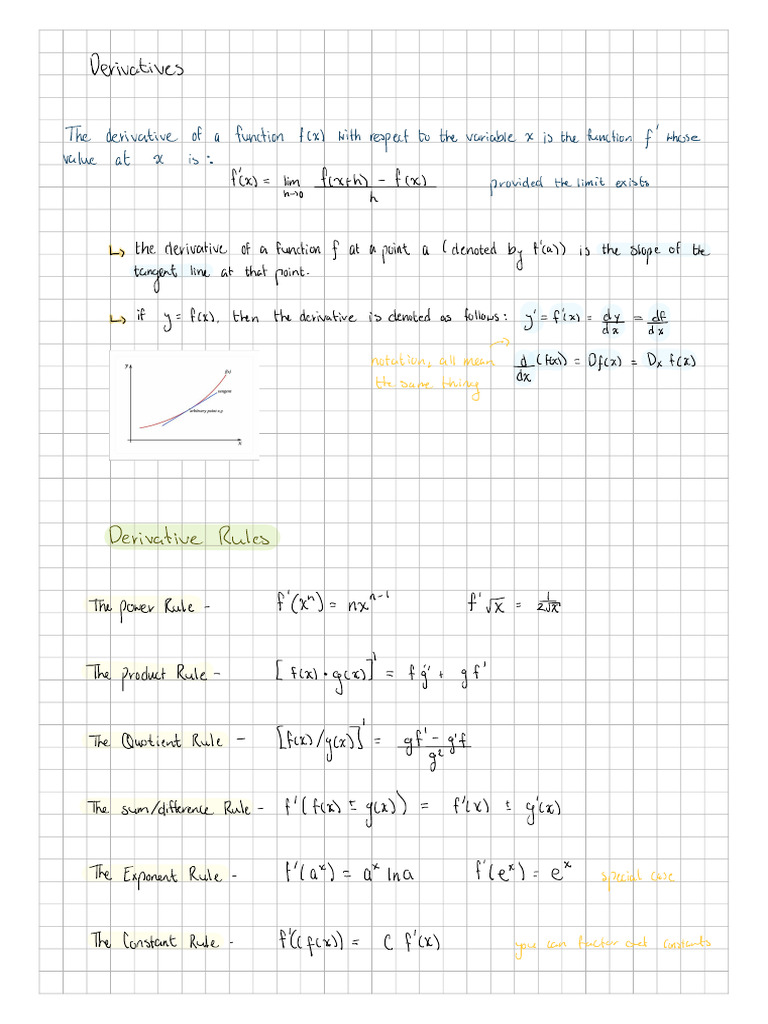 Derivatives
The derivative of a function f(x) with respect to the variable x is the function f' whose
value at x is:
f'(x) = lim h→0 f(x+h) - f(x) / h provided the limit exists
↳ the derivative of a function f at a point a (denoted by f'(a)) is the slope of the
tangent line at that point.
↳ if y = f(x), then the derivative is denoted as follows: y' = f'(x) = dy/dx = df/dx
notation, all mean d/dx (f(x)) = Df(x) = Dx f(x)
the same thing
y
f(x)
tangent
arbitrary point x,y
x
Derivative Rules
The Power Rule - f'(xⁿ) = nxⁿ⁻¹ f' √x = 1/2√x
The Product Rule - [f(x) · g(x)]' = fg' + gf'
The Quotient Rule - [f(x)/g(x)]' = gf' - g'f / g²
The sum/difference Rule - f'(f(x) ± g(x)) = f'(x) ± g'(x)
The Exponent Rule - f'(aˣ) = aˣ ln a f'(eˣ) = eˣ special case
The Constant Rule - f'(Cf(x)) = C f'(x) you can factor out constants